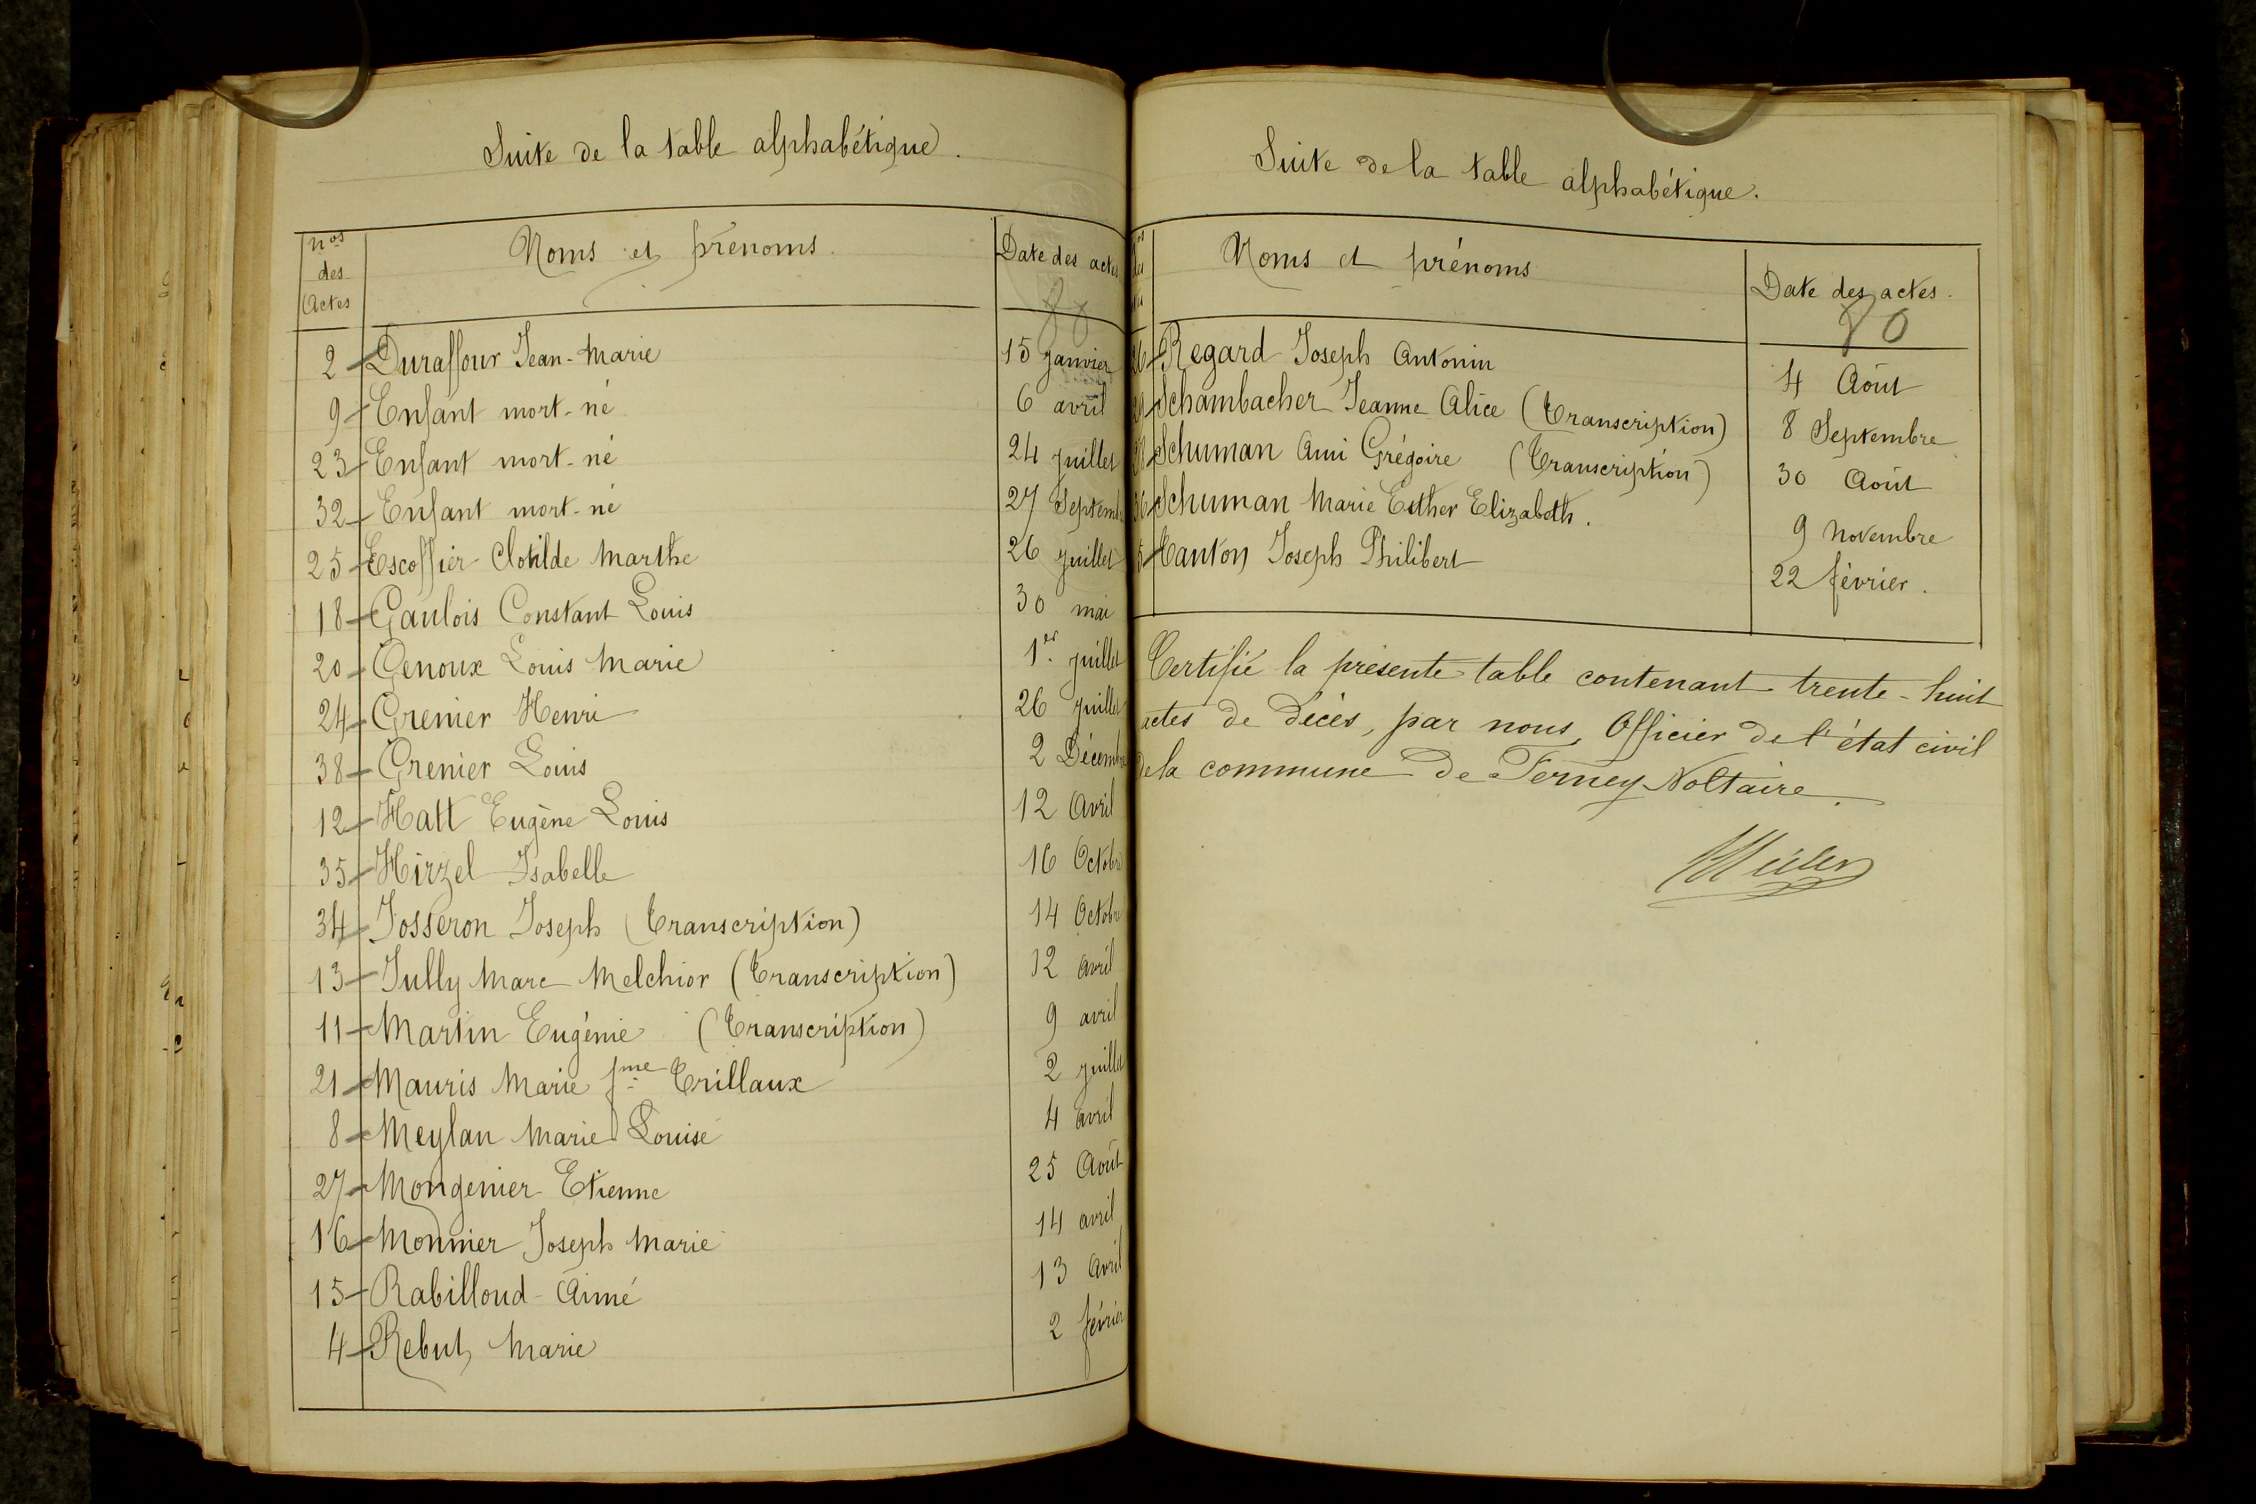 Suite de la table alphabétique.
nos des Actes Noms et prénoms. Date des actes
80
2 Duraffour Jean-Marie 15 janvier
9 Enfant mort-né 6 avril
23 Enfant mort-né 24 juillet
32 Enfant mort-né 27 Septemb
25 Escoffier Clotilde Marthe 26 juillet
18 Gaulois Constant Louis 30 mai
20 Genoux Louis Marie 1er juillet
24 Grenier Henri 26 juillet
38 Grenier Louis 2 Décembre
12 Hatt Eugène Louis 12 Avril
35 Hirzel Isabelle 16 Octobre
34 Josseron Joseph (Transcription) 14 Octobre
13 Jully Marc Melchior (Transcription) 12 avril
11 Martin Eugénie (Transcription) 9 avril
21 Mauris Marie fme Trillaux 2 juillet
8 Meylan Marie Louise 4 avril
27 Mongenier Etienne 25 Août
16 Monnier Joseph Marie 14 avril
15 Rabilloud Aimé 13 Avril
4 Rebut Marie 2 février
Suite de la table alphabétique.
Noms et prénoms Date des actes.
80
26 Regard Joseph Antonin 4 Août
Schambacher Jeanne Alice (Transcription) 8 Septembre
Schuman Ami Grégoire (Transcription) 30 Août
36 Schuman Marie Esther Elizabeth. 9 Novembre
5 Tanton Joseph Philibert 22 février.
Certifié la présente table contenant trente-huit
actes de décès, par nous, Officier de l'état civil
de la commune de Ferney-Voltaire.